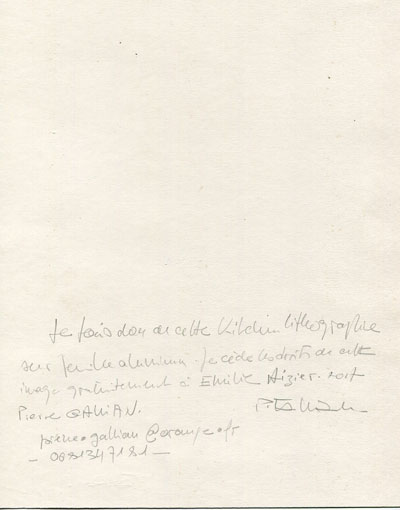 Je fais don de cette Kitchen lithographie
sur feuille aluminium. Je cède les droits de cette
image gratuitement à Emilie Aizier. 2017
Pierre GALLIAN.
pierre.gallian@orange.fr
- 0681347181 -